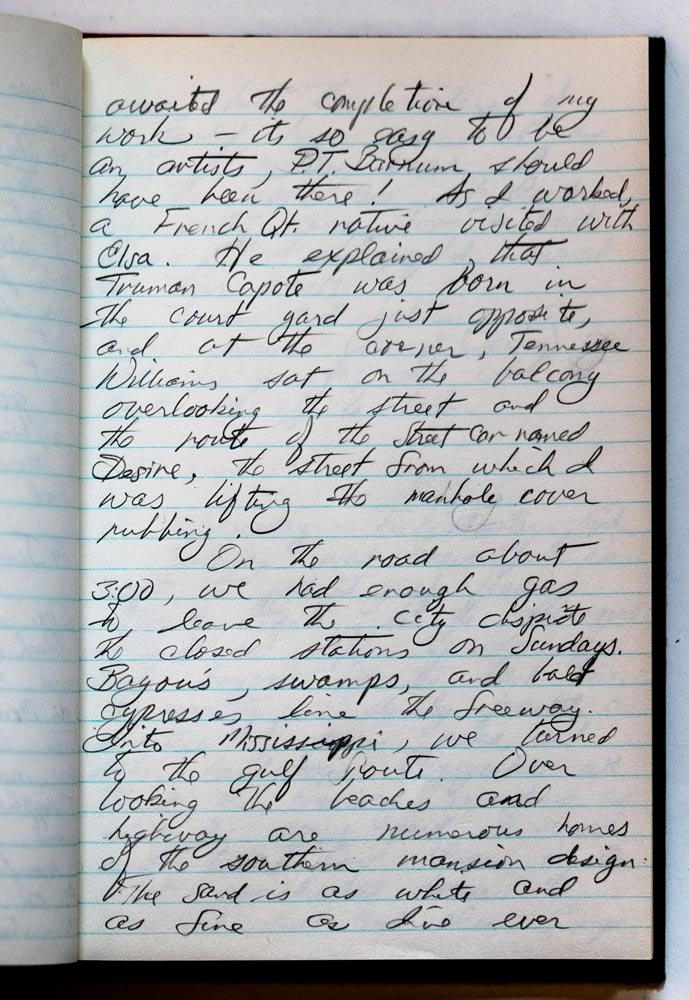 awaited the completion of my
work – its so easy to be
an artists, P.T. Barnum should
have been there! As I worked,
a French Qt. native visited with
Elsa. He explained that
Truman Capote was born in
the court yard just opposite,
and at the corner, Tennessee
Williams sat on the balcony
overlooking the street and
the route of the Street Car named
Desire, the street from which I
was lifting the manhole cover
rubbing.
On the road about
3:00, we had enough gas
to leave the city dispite
the closed stations on Sundays.
Bayou's, swamps, and bald
cypresses line the freeway.
Into Mississippi, we turned
to the gulf route. Over
looking the beaches and
highway are numerous homes
of the southern mansion design.
The sand is as white and
as fine as I've ever